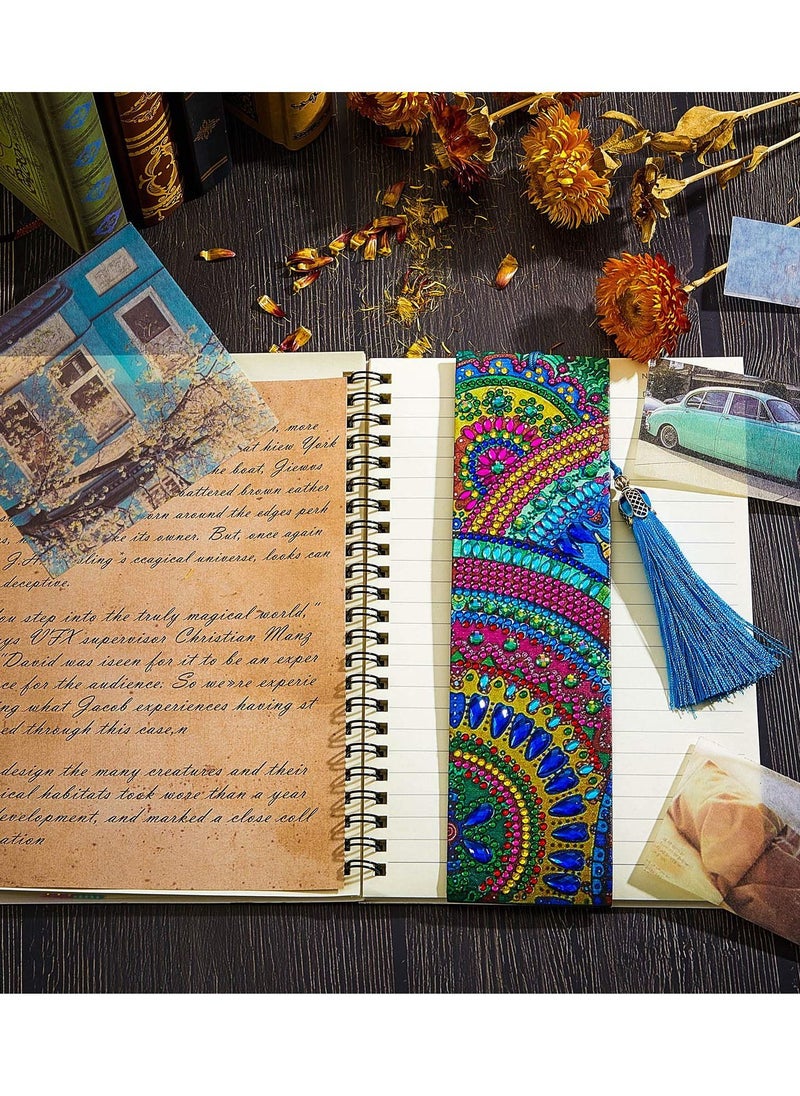 , more
at hiew York
the boat, Giewos
battered brown eather
orn around the edges perh
ke its owner. But, once again
J.H sling's ccagical universe, looks can
deceptive.
ou step into the truly magical world,"
ys VFX supervisor Christian Manz
"David was iseen for it to be an exper
ce for the audience: So we»re experie
ng what Jacob experiences having st
ed through this case,n
design the many creatures and their
ical habitats took wore than a year
evelopment, and marked a close coll
ation